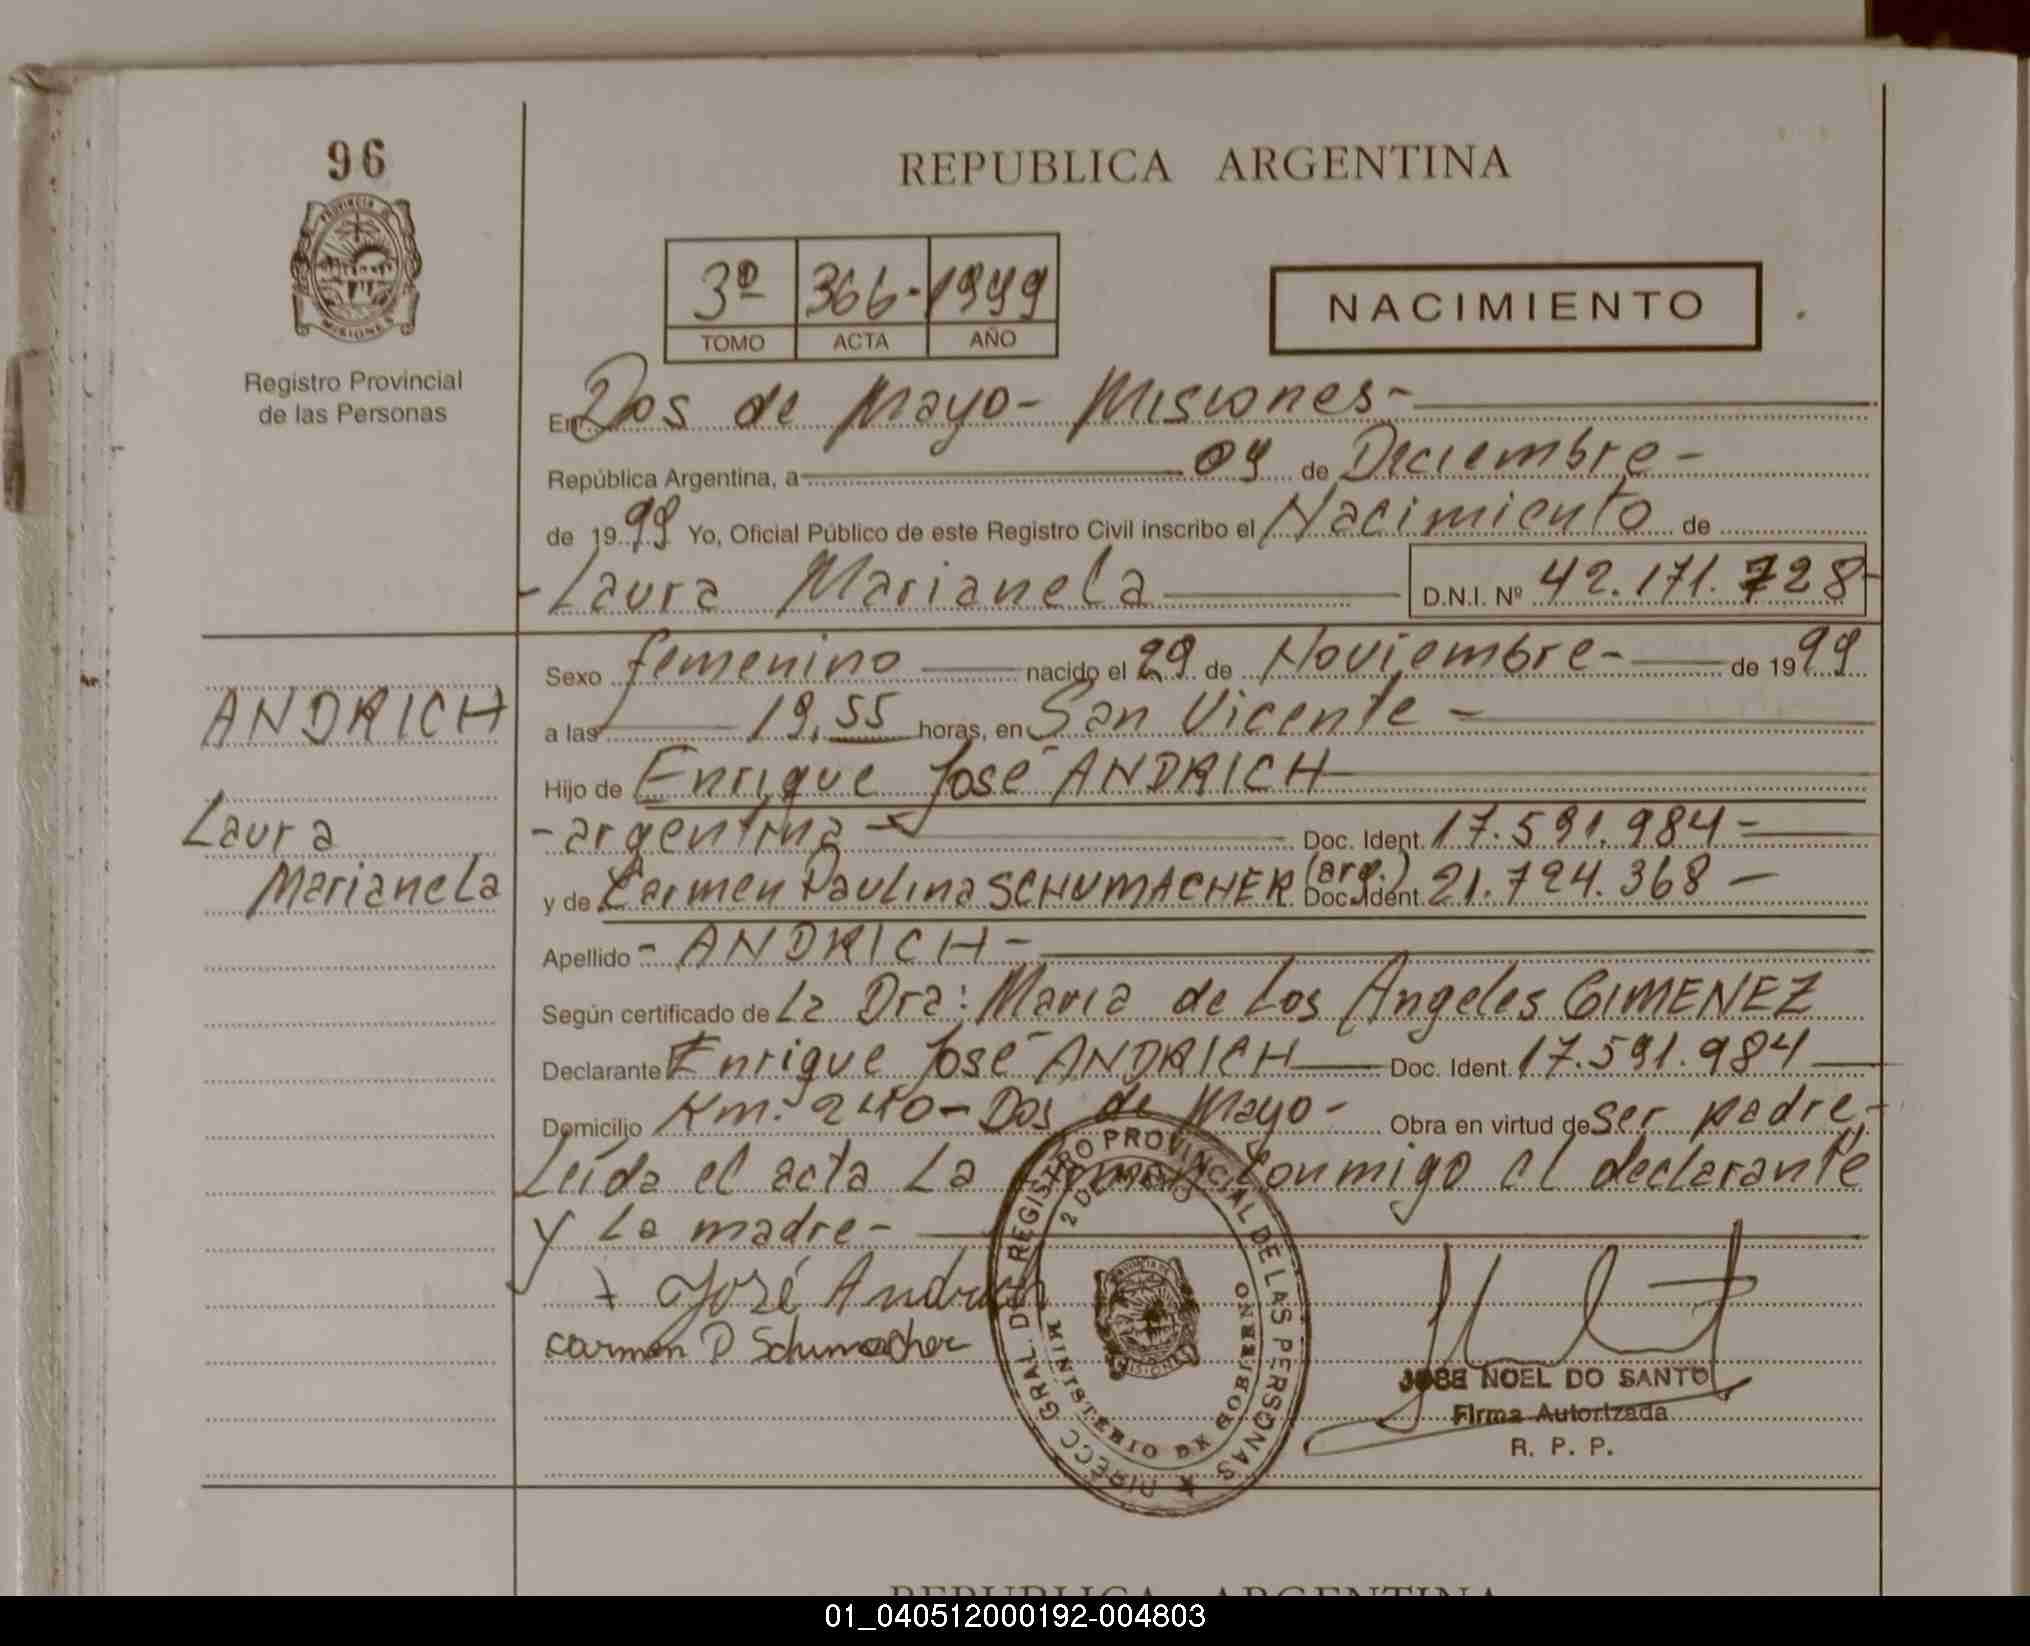 96
REPUBLICA ARGENTINA
PROVINCIA DE
MISIONES
3º 366- 1999
TOMO ACTA AÑO
NACIMIENTO
Registro Provincial
de las Personas
En Dos de Mayo - Misiones -
República Argentina, a 09 de Diciembre -
de 1999 Yo, Oficial Público de este Registro Civil inscribo el Nacimiento de
- Laura Marianela D.N.I. Nº 42.171.728-
Sexo femenino nacido el 29 de Noviembre - de 1999
ANDRICH
a las 19,55 horas, en San Vicente -
Hijo de Enrique José ANDRICH
Laura
- argentina - Doc. Ident. 17.591.984 -
Marianela
y de Carmen Paulina SCHUMACHER (arg.) Doc. Ident. 21.724.368 -
Apellido - ANDRICH -
Según certificado de La Dra: Maria de Los Angeles GIMENEZ
Declarante Enrique José ANDRICH Doc. Ident. 17.591.984
Domicilio Km. 240 - Dos de Mayo - Obra en virtud de ser padre -
Leída el acta La firman conmigo el declarante
y La madre -
José Andrich
Carmen P Schumacher
DIRECC. GRAL. DEL REGISTRO PROVINCIAL DE LAS PERSONAS
2 DE MAYO
MINISTERIO DE GOBIERNO
JOSE NOEL DO SANTO
Firma Autorizada
R. P. P.
REPUBLICA ARGENTINA
01_040512000192-004803